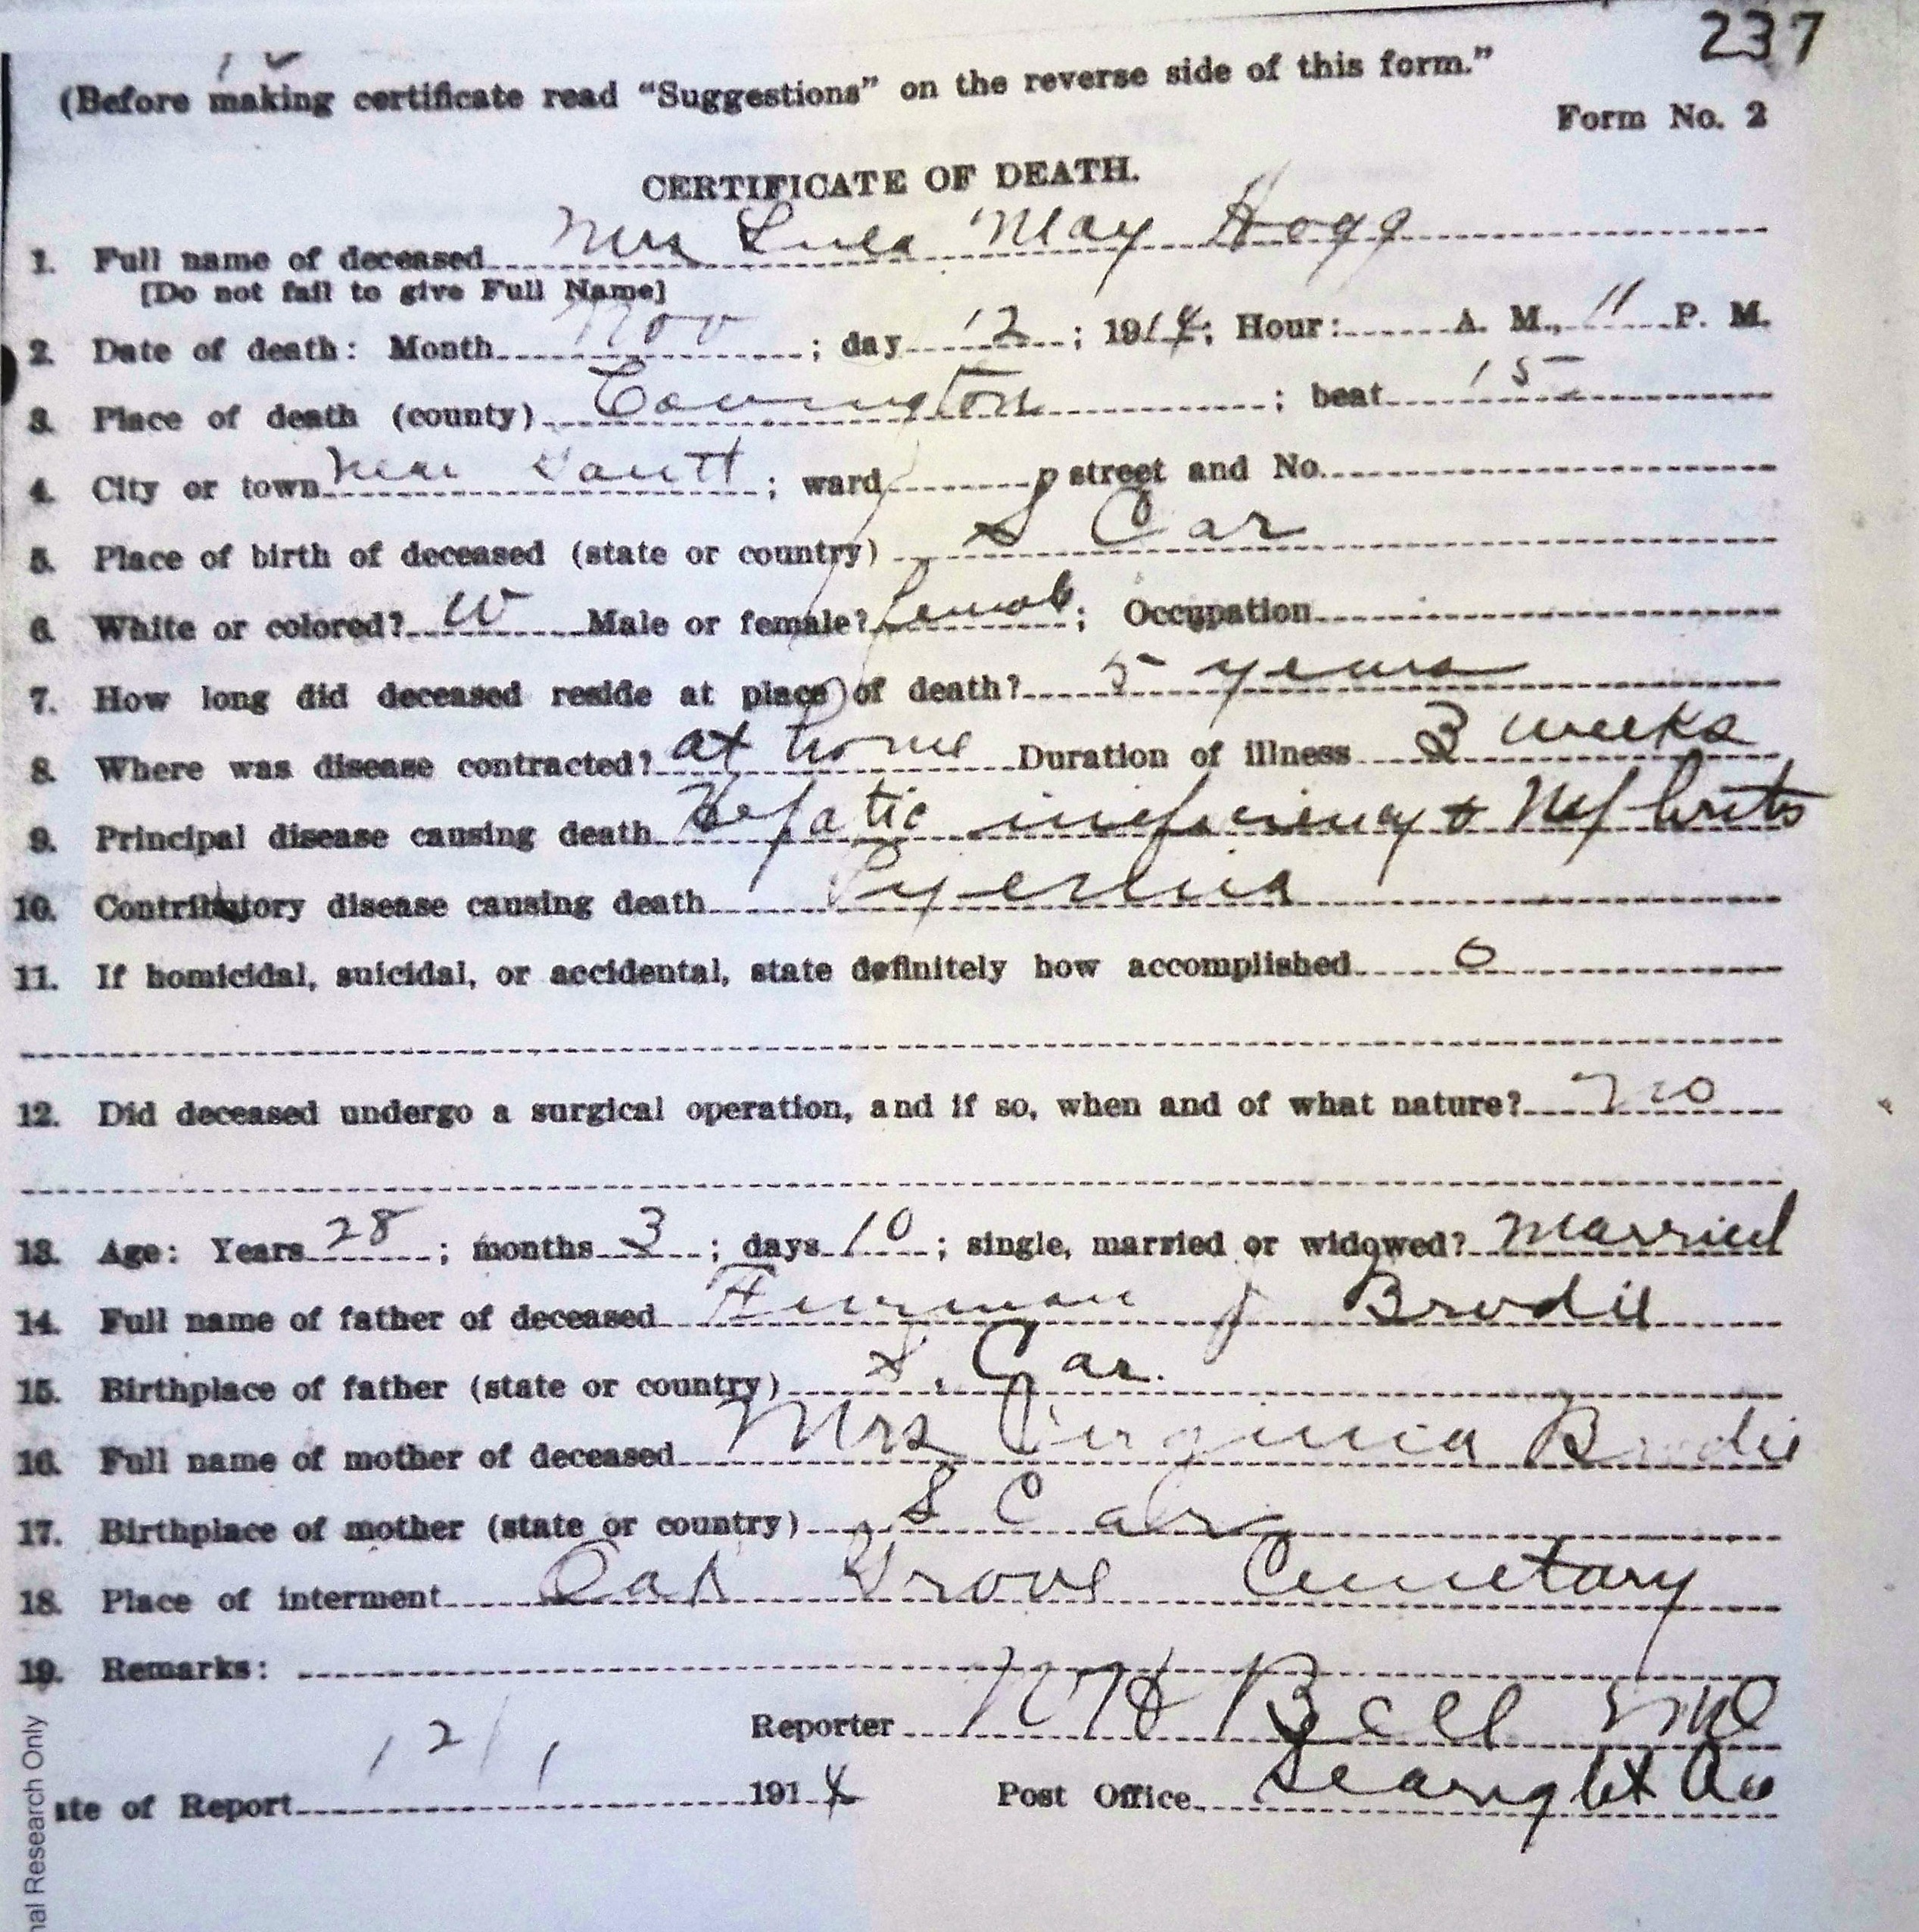 237
(Before making certificate read "Suggestions" on the reverse side of this form."
Form No. 2
CERTIFICATE OF DEATH.
1. Full name of deceased Mrs Lula May Hogg
[Do not fail to give Full Name]
2. Date of death: Month Nov ; day 12 ; 1914; Hour: A. M., 11 P. M.
3. Place of death (county) Covington ; beat 15
4. City or town near Gantt ; ward ; street and No.
5. Place of birth of deceased (state or country) S Car
6. White or colored? W Male or female? female; Occupation
7. How long did deceased reside at place of death? 5 years
8. Where was disease contracted? at home Duration of illness 3 weeks
9. Principal disease causing death Hepatic & Nephrits
10. Contributory disease causing death
11. If homicidal, suicidal, or accidental, state definitely how accomplished 0
12. Did deceased undergo a surgical operation, and if so, when and of what nature? no
13. Age: Years 28 ; months 3 ; days 10 ; single, married or widowed? Married
14. Full name of father of deceased Furman J Brodie
15. Birthplace of father (state or country) S. Car.
16. Full name of mother of deceased Mrs Virginia Brodie
17. Birthplace of mother (state or country) S Car
18. Place of interment Oak Grove Cemetary
19. Remarks:
Reporter Bell MD
ate of Report 12/1 1914 Post Office Searight Ala
nal Research Only